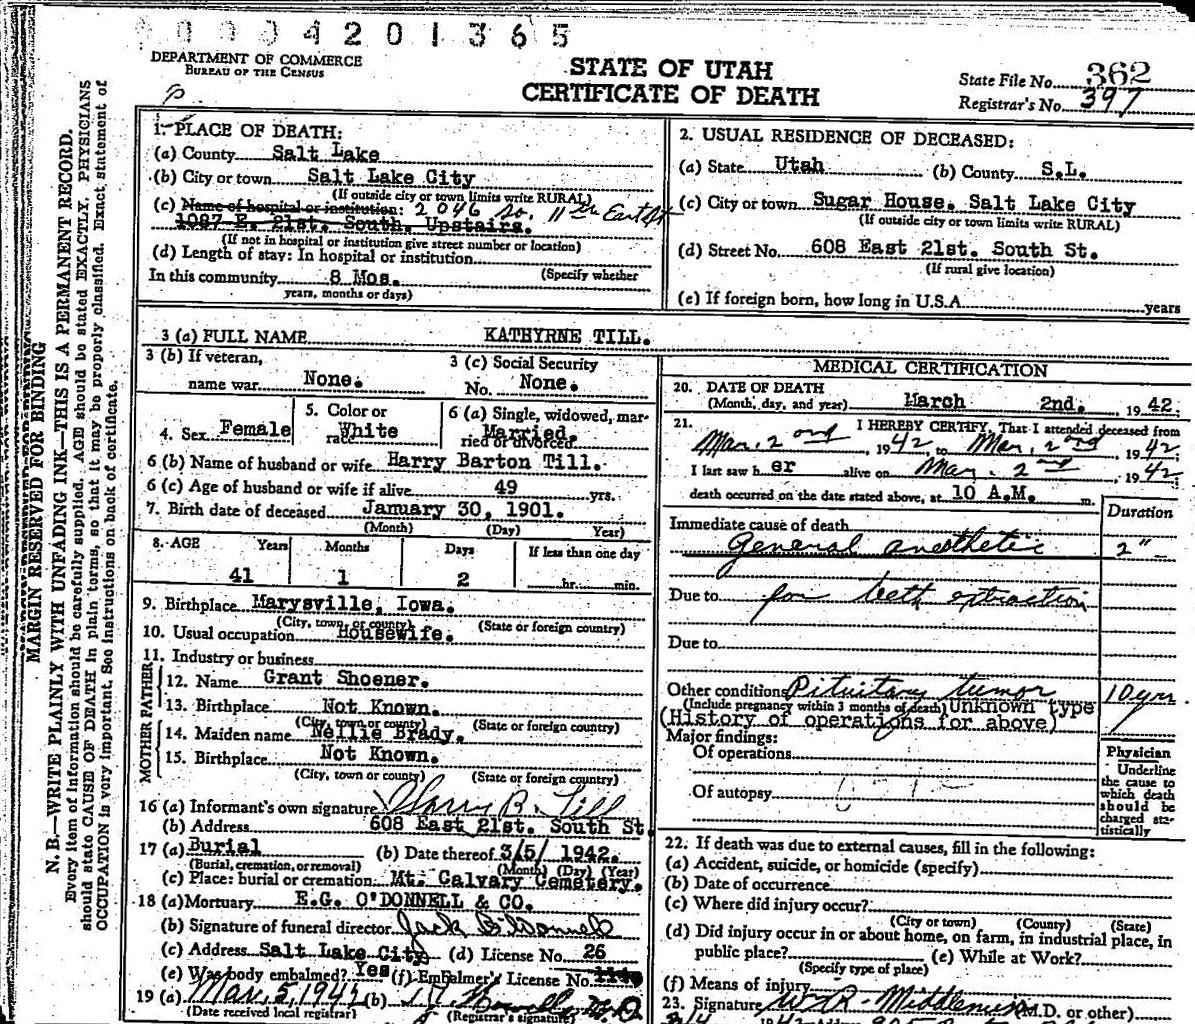 0004201365
DEPARTMENT OF COMMERCE
BUREAU OF THE CENSUS
STATE OF UTAH
CERTIFICATE OF DEATH
State File No. 362
Registrar's No. 397
MARGIN RESERVED FOR BINDING
N. B.—WRITE PLAINLY WITH UNFADING INK—THIS IS A PERMANENT RECORD.
Every item of information should be carefully supplied. AGE should be stated EXACTLY. PHYSICIANS
should state CAUSE OF DEATH in plain terms, so that it may be properly classified. Exact statement of
OCCUPATION is very important. See instructions on back of certificate.
1. PLACE OF DEATH:
(a) County Salt Lake
(b) City or town Salt Lake City
(If outside city or town limits write RURAL)
(c) Name of hospital or institution: 2046 So. 11th East St
1087 E. 21st. South, Upstairs.
(If not in hospital or institution give street number or location)
(d) Length of stay: In hospital or institution
(Specify whether
In this community 8 Mos.
years, months or days)
2. USUAL RESIDENCE OF DECEASED:
(a) State Utah (b) County S.L.
(c) City or town Sugar House. Salt Lake City
(If outside city or town limits write RURAL)
(d) Street No. 608 East 21st. South St.
(If rural give location)
(e) If foreign born, how long in U.S.A. years
3 (a) FULL NAME KATHYRNE TILL.
3 (b) If veteran,
name war None.
3 (c) Social Security
No. None.
4. Sex Female
5. Color or
race White
6 (a) Single, widowed, mar-
ried or divorced Married.
6 (b) Name of husband or wife Harry Barton Till.
6 (c) Age of husband or wife if alive 49 yrs.
7. Birth date of deceased January 30, 1901.
(Month) (Day) Year)
8. AGE Years Months Days If less than one day
41 1 2 hr. min.
9. Birthplace Marysville, Iowa.
(City, town, or county) (State or foreign country)
10. Usual occupation Housewife.
11. Industry or business
FATHER
12. Name Grant Shoener.
13. Birthplace Not Known.
(City, town or county) (State or foreign country)
MOTHER
14. Maiden name Nellie Brady.
15. Birthplace Not Known.
(City, town or county) (State or foreign country)
16 (a) Informant's own signature Harry B. Till
(b) Address 608 East 21st. South St.
17 (a) Burial (b) Date thereof 3/5/ 1942.
(Burial, cremation, or removal) (Month) (Day) (Year)
(c) Place: burial or cremation Mt. Calvary Cemetery.
18 (a) Mortuary E.G. O'DONNELL & CO.
(b) Signature of funeral director Jack O'Donnell
(c) Address Salt Lake City (d) License No. 26
(e) Was body embalmed? Yes (f) Embalmer's License No.
19 (a) Mar. 5, 1942 (b)
(Date received local registrar) (Registrar's signature)
MEDICAL CERTIFICATION
20. DATE OF DEATH
(Month, day, and year) March 2nd. , 1942.
21. I HEREBY CERTIFY, That I attended deceased from
Mar. 2nd , 1942, to Mar. 2nd , 1942;
I last saw her alive on Mar. 2nd , 1942
death occurred on the date stated above, at 10 A.M. m.
Duration
Immediate cause of death
General anesthetic 2"
Due to for teeth extraction
Due to
Other conditions Pituitary tumor 10 yrs.
(Include pregnancy within 3 months of death) Unknown type
(History of operations for above)
Major findings:
Of operations
Of autopsy
Physician
Underline
the cause to
which death
should be
charged sta-
tistically
22. If death was due to external causes, fill in the following:
(a) Accident, suicide, or homicide (specify)
(b) Date of occurrence
(c) Where did injury occur?
(City or town) (County) (State)
(d) Did injury occur in or about home, on farm, in industrial place, in
public place? (e) While at Work?
(Specify type of place)
(f) Means of injury
23. Signature (M.D. or other)